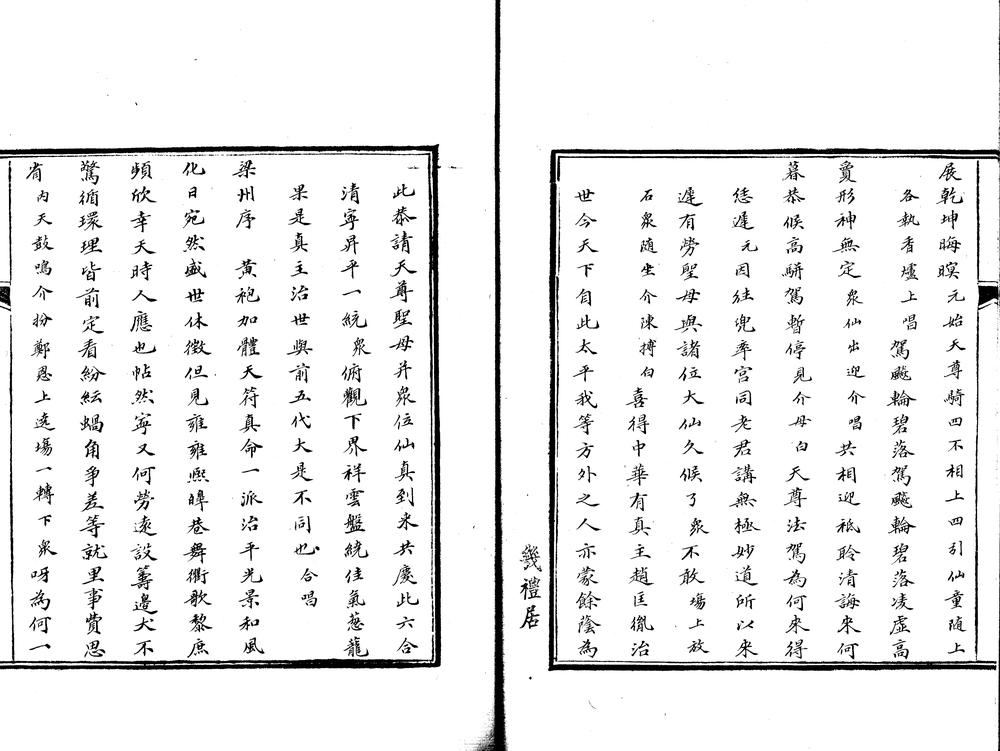 展乾坤晦暝元始天尊騎四不相上四引仙童隨上
各執香爐上唱駕飈輪碧落駕飈輪碧落凌虛高
賁形神無定衆仙出迎介唱共相迎祇聆清誨來何
暮恭候高駢駕暫停見介母白天尊法駕為何來得
恁遲元因往兜率宮同老君講無極妙道所以來
遲有勞聖母與諸位大仙久候了衆不敢塲上放
石衆隨坐介陳摶白喜得中華有真主趙匡胤治
世今天下自此太平我等方外之人亦蒙餘蔭為
幾禮居
此恭請天尊聖母并衆位仙真到來共慶此六合
清寧昇平一統衆俯觀下界祥雲盤繞佳氣蔥蘢
果是真主治世與前五代大是不同也合唱
梁州序黃袍加體天符真命一派治平光景和風
化日宛然盛世休徵但見雍雍熙皞巷舞衢歌黎庶
頻欣幸天時人應也帖然寧又何勞遠設籌邊犬不
驚循環理皆前定看紛紜蝸角爭差等就里事費思
省內天鼓鳴介扮鄭恩上遶塲一轉下衆呀為何一